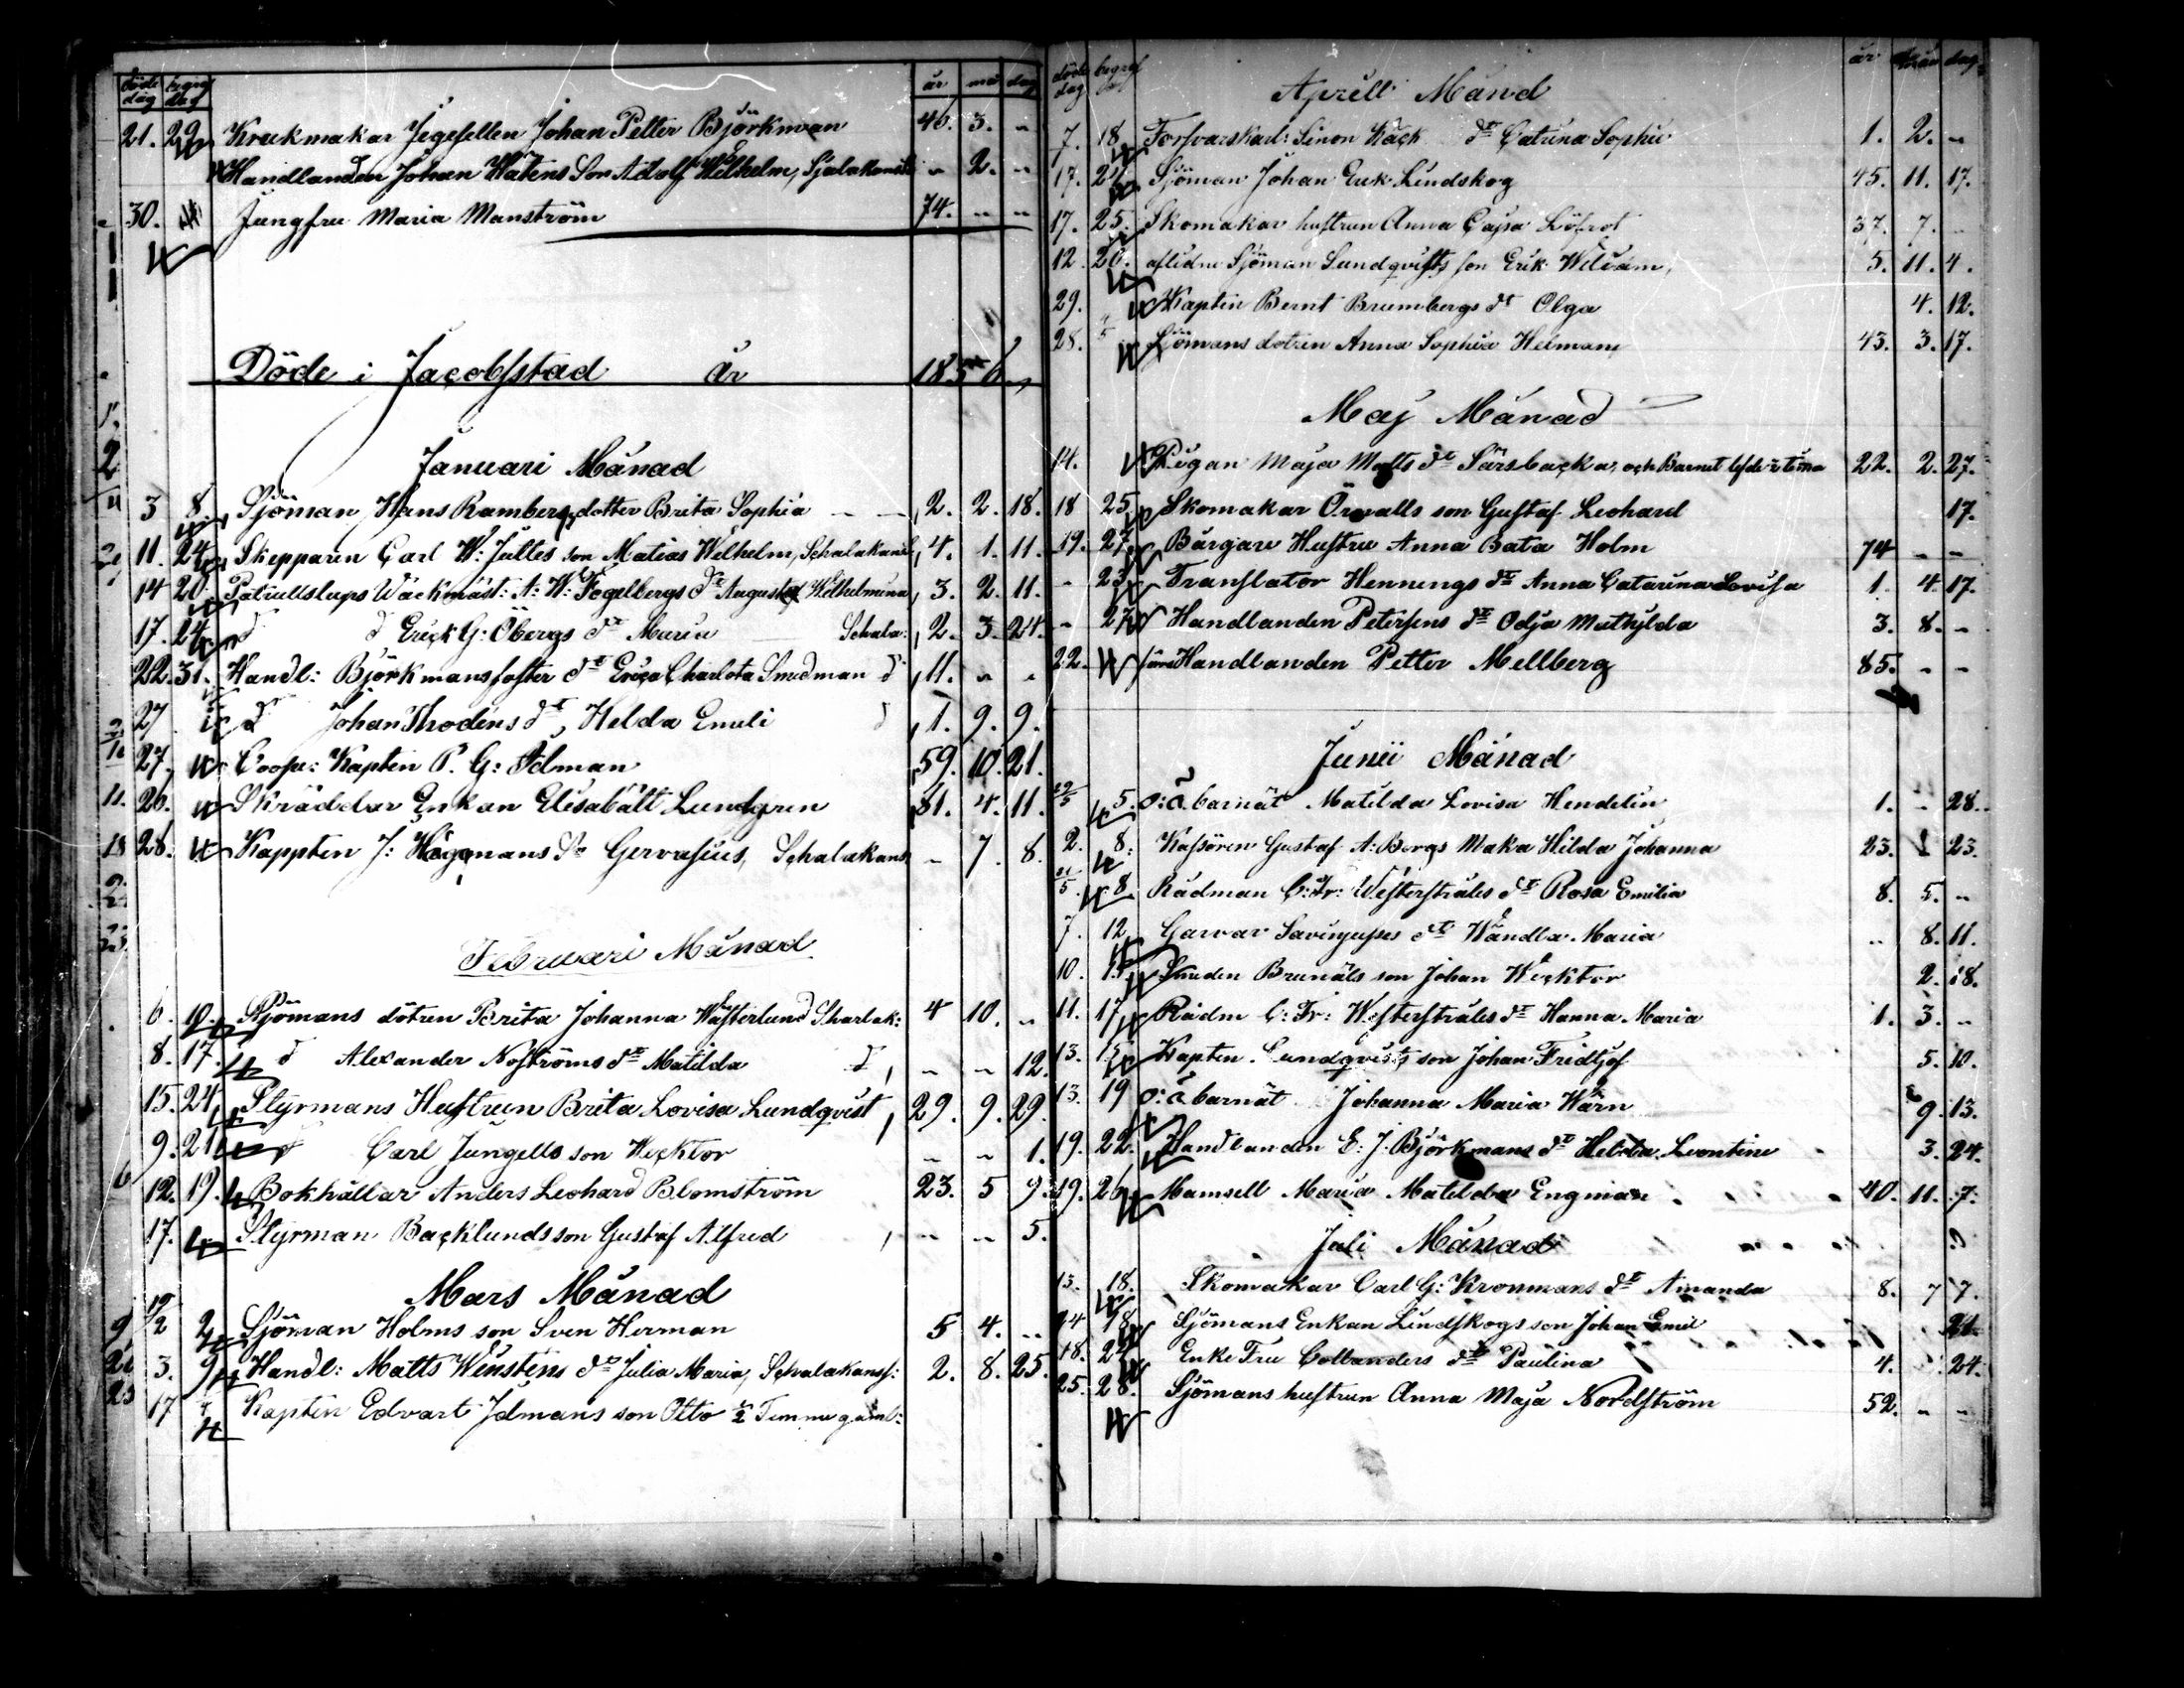 döde dag begrf dag år må dag
21. 22 Krukmakar Jegesellen Johan Petter Björkman 46. 3. "
Handlanden Johan Håtens Son Adolf Wilhelm, Sjalakans " 2. "
30. Jungfru Maria Manström 74. " "
Döde i Jacobsstad år 1856.
Januari Månad
3 8. Sjöman Hans Rambergs dotter Brita Sophia 2. 2. 18.
11. 24 Skepparen Carl W: Jultes son Matias Wilhelm, Schalakans 4. 1. 11.
14 20 Wäckmäst: A: W: Fogelbergs dr Augusta Wilhelmina 3. 2. 11.
17. 24. d d Erick G: Öbergs dr Maria Schala: 2. 3. 24.
22. 31. Handl: Björkmans foster dr Erica Charlota Smedman d 11. " "
27 d Johan Thodens dr, Helda Emeli d 1. 9. 9.
27. Coop: Kapten P. G: Idman 59. 10. 21.
20. Skräddar Enkan Elisabätt Lundgren 81. 4. 11.
28. Kappten J: Högmans Sn Gervasius, Schalakans " 7. 8.
Februari Månad
6. 10. Sjömans dötren Brita Johanna Wästerlund Scharlak: 4 10. "
8. 17. d Alexander Noströms dr Matilda d " " 12.
15. 24. Styrmans Hustrun Brita Lovisa Lundqvist 29. 9. 29.
9. 21 d Carl Jungells son Wicktor " " 1.
12. 19. Bokhållar Anders Leohard Blomström 23. 5 9.
17. Styrman Backlunds son Gustaf Alfred " " 5.
Mars Månad
19/2 2 Sjöman Holms son Sven Herman 5 4. "
3. 9 Handl: Matts Winstens dr Julia Maria, Schalakans: 2. 8. 25.
17 Kapten Edvart Idmans son Otto ½ Timme gaml:
döde dag begrf dag år mån dag
Aprill Månd
7. 18. Forsvarskarl: Simon Käck dr Catrina Sophia 1. 2. "
17. 27. Sjöman Johan Erik Lindskog 45. 11. 17.
17. 25. Skomakar hustrun Anna Cajsa Löfrot 37. 7. "
12. 26. aflidne Sjöman Sundqvists son Erik Wiliam, 5. 11. 4.
29. Kapten Bernt Brumbergs dr Olga 4. 12.
28. 5 Sjömans dotren Anna Sophia Helman 43. 3. 17.
Maj Månad
14. Pigan Maja Matts dr Särsbacka, och Barnet lefde 2 tima 22. 2. 27.
18 25 Skomakar Örvalls son Gustaf Leohard 17.
19. 27. Bärgare Hustru Anna Cata Holm 74 " "
" 25 Translator Hennings dr Anna Catarina Lovisa 1. 4. 17.
" 27 Handlanden Petersens dr Odja Mathylda 3. 8. "
22. Handlanden Petter Mellberg 85. " "
Junii Månad
29/5 5. o: ä barnät Matilda Lovisa Hendelin 1. " 28.
2. 8. Kassören Gustaf A: Bergs Maka Hilda Johanna 23. 1 23.
31/5. 8 Rådman C: Fr: Westerstråles dr Rosa Emilia 8. 5. "
7. 12 Garvar dr Wändla Maria " 8. 11.
10. 15 Smeden Brunäls son Johan Wicktor 2. 18.
11. 17 Rådm C: Fr: Westerstråles dr Hanna Maria 1. 3. "
13. 15 Kapten Lundqvists son Johan Fridtjof 5. 10.
13. 19 o: ä barnät Johanna Maria Wärn 9. 13.
19. 22. Handlanden E: J: Björkmans dr Helda Leontine 3. 24.
19. 26. Mamsell Maria Matilda Engman 40. 11. 7.
Juli Månad
13. 18. Skomakar Carl G: Kronmans dr Amanda 8. 7 7.
14 18 Sjömans Enkan Lindskogs son Johan Emil 21
18. 22 Enke Fru Collanders dr Paulina 4. 24.
25. 28. Sjömans hustrun Anna Maja Nordström 52. " "